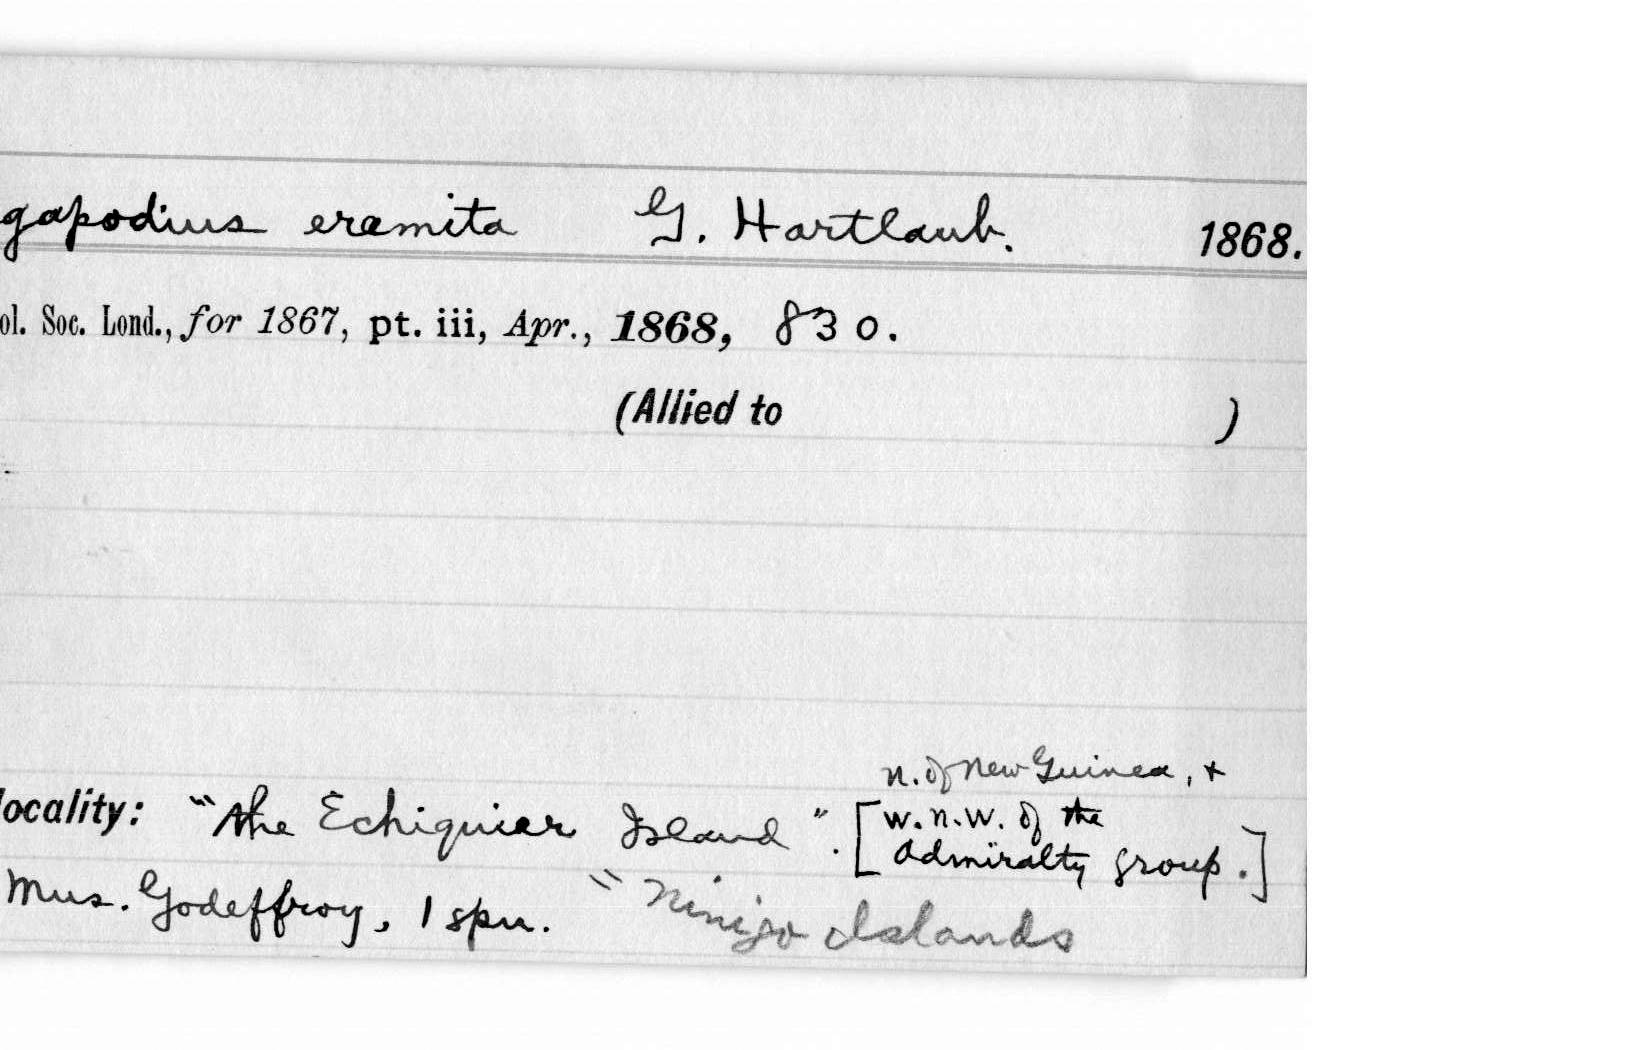 gapodius eremita G. Hartlaub. 1868.
ol. Soc. Lond., for 1867, pt. iii, Apr., 1868, 830.
(Allied to )
n. of New Guinea, +
locality: "the Echiquier Island". [w.n.w. of the
Admiralty group.]
Mus. Godeffroy, 1 spn. " Ninigo Islands